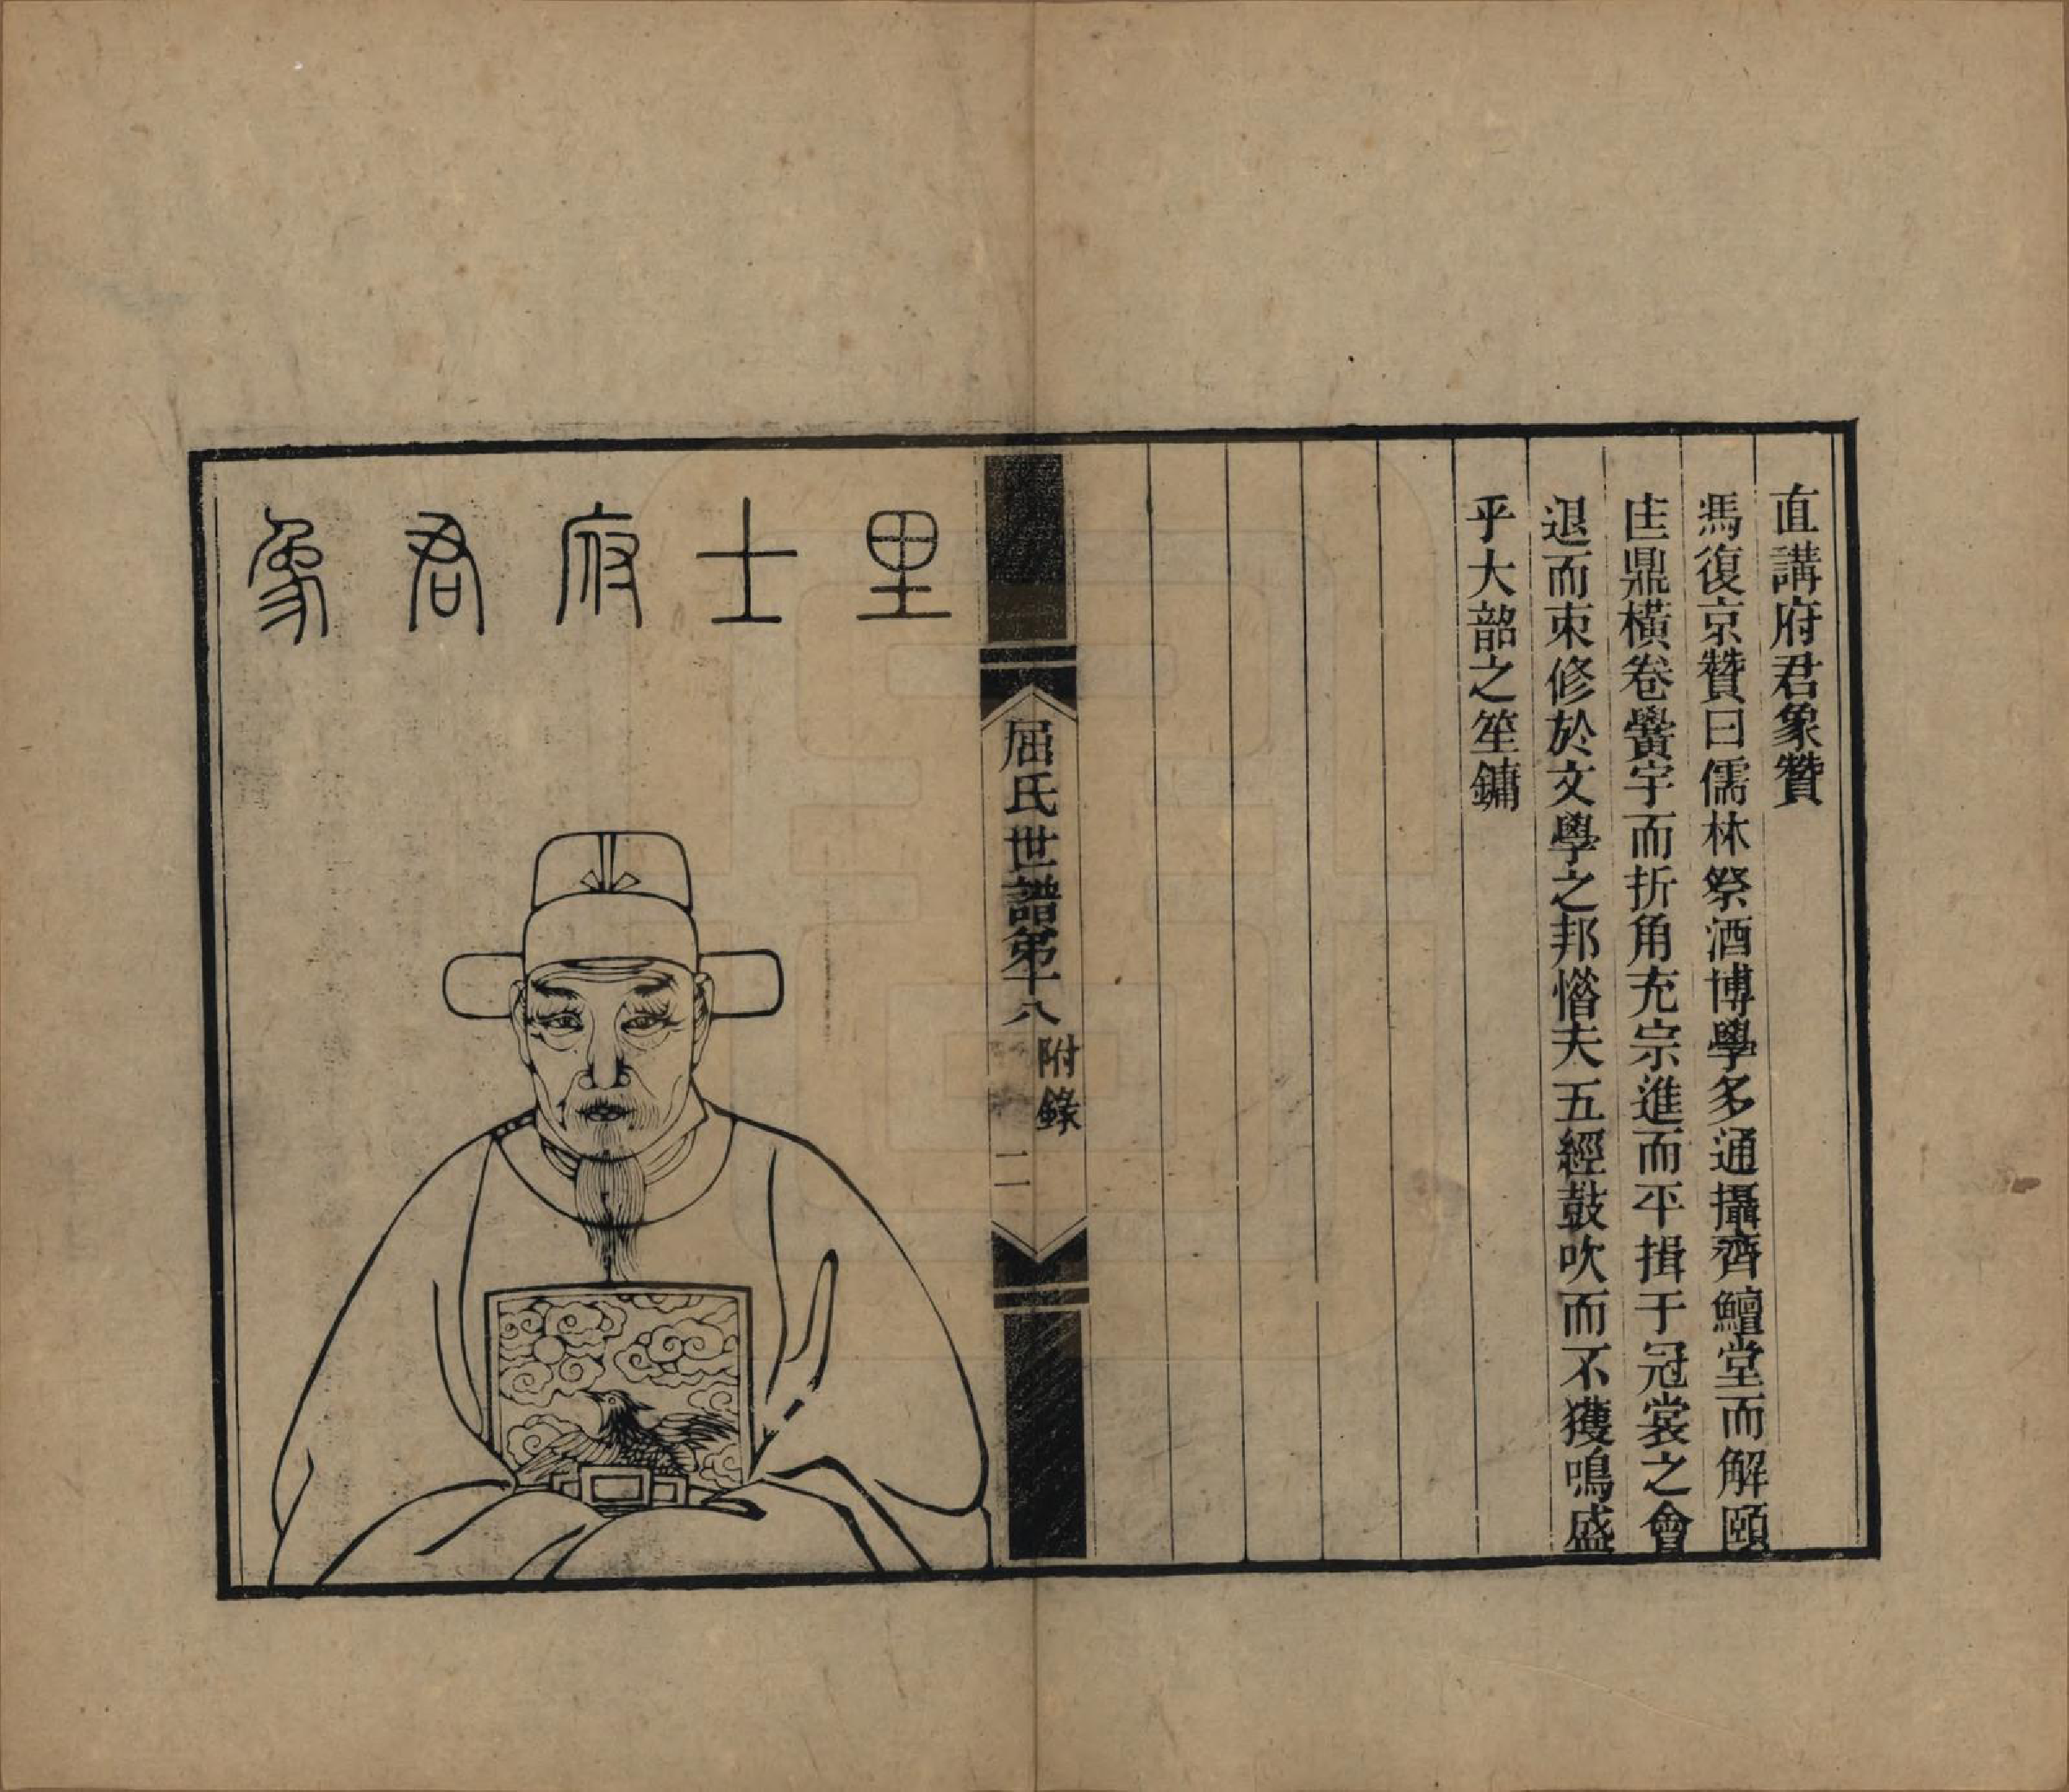 直講府君象贊
馮復京贊曰儒林祭酒博學多通攝齊鱣堂而解頤
匡鼎橫卷黌宇而折角充宗進而平揖于冠裳之會
退而束修於文學之邦惜夫五經鼓吹而不獲鳴盛
乎大韶之笙鏞
屈氏世譜第十八
附錄
二
里士府君象